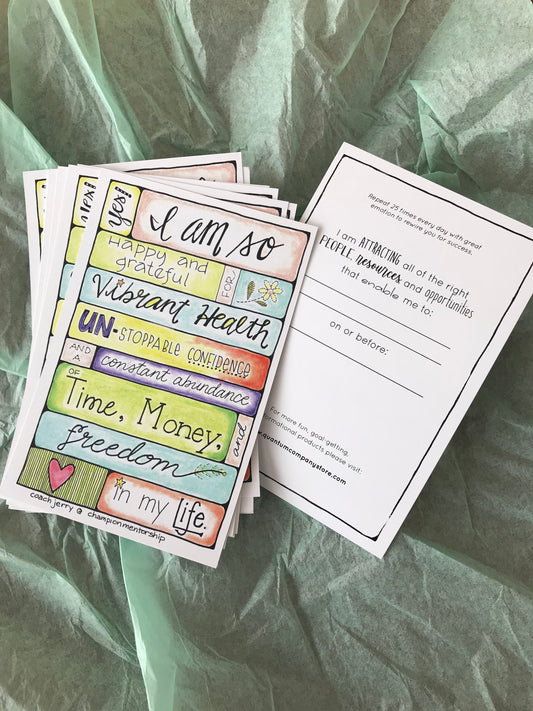 yes!
yes!
I am so
Happy and
grateful
FOR
Vibrant Health
UN-STOPPABLE CONFIDENCE
AND
A
constant abundance
OF
Time, Money,
and
freedom
in my Life.
coach jerry @ championmentorship
Repeat 25 times every day with great
emotion to rewire you for success.
I am ATTRACTING all of the right
PEOPLE, resources and opportunities
that enable me to:
on or before:
For more fun, goal-getting,
rmational products please visit:
.quantumcompanystore.com